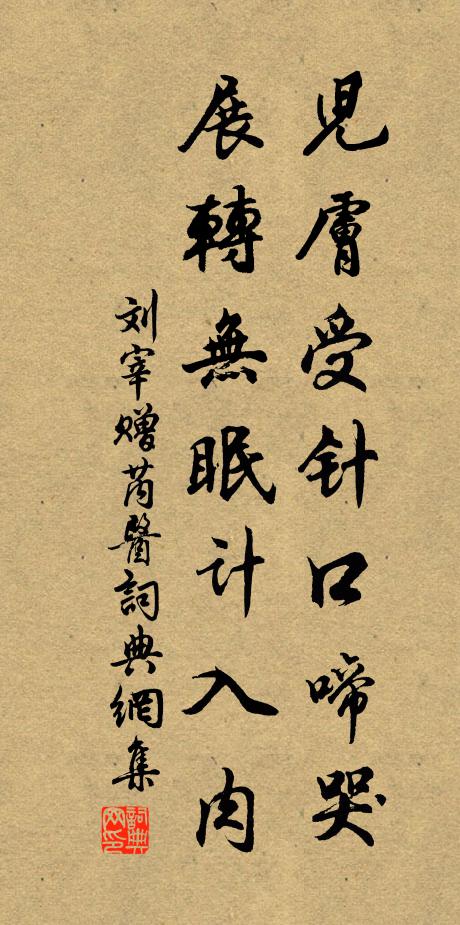 児膚受针口啼哭
展轉無眠计入肉
刘宰赠芮醫詞典網集
詞典网印